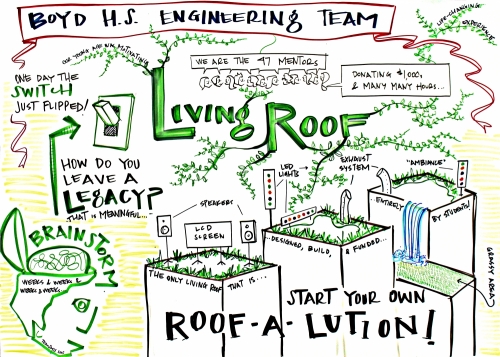 BOYD H.S. ENGINEERING TEAM
LIFE-CHANGING
EXPERIENCE
WE ARE THE 47 MENTORS
DONATING $1,000,
& MANY MANY HOURS...
ONE DAY THE
SWITCH
JUST FLIPPED!
LIVING ROOF
HOW DO YOU
LEAVE A
LEGACY?
THAT IS MEANINGFUL...
LED
LIGHTS
EXHAUST
SYSTEM
"AMBIANCE"
SPEAKERS
LCD
SCREEN
BRAINSTORM
WEEKS & WEEKS &
WEEKS & WEEKS
THE ONLY LIVING ROOF THAT IS...
...DESIGNED, BUILT, & FUNDED...
...ENTIRELY
BY STUDENTS!
GRASSY AREA
START YOUR OWN
ROOF-A-LUTION!